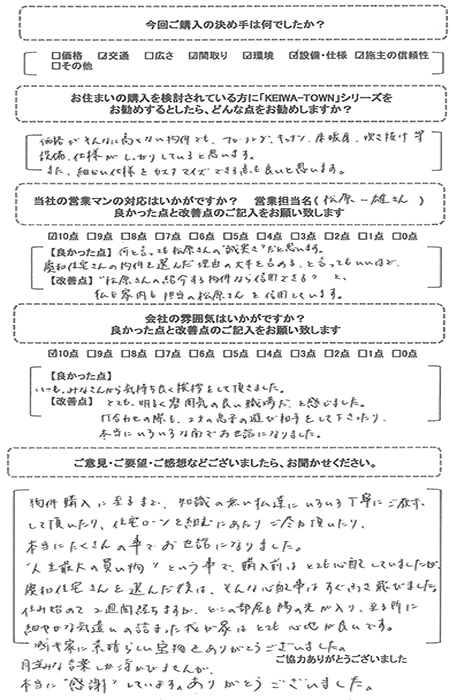 今回ご購入の決め手は何でしたか？
□価格 ☑交通 □広さ ☑間取り ☑環境 ☑設備・仕様 ☑施主の信頼性
□その他
お住まいの購入を検討されている方に「KEIWA-TOWN」シリーズを
お勧めするとしたら、どんな点をお勧めしますか？
価格がそんなに高くない物件でも、フローリング、キッチン、床暖房、吹き抜け等
設備、仕様がしっかりしていると思います。
また、細かい仕様をカスタマイズできる点も良いと思います。
当社の営業マンの対応はいかがですか？ 営業担当名（松原 一雄さん）
良かった点と改善点のご記入をお願い致します
☑10点 □9点 □8点 □7点 □6点 □5点 □4点 □3点 □2点 □1点 □0点
【良かった点】何と言っても松原さんの"誠実さ"だと思います。
慶和住宅さんの物件を選んだ理由の大半を占める、と言ってもいいほど、
【改善点】"松原さんの紹介する物件なら信用できる"と、
私も家内も担当の松原さんを信用しています。
会社の雰囲気はいかがですか？
良かった点と改善点のご記入をお願い致します
☑10点 □9点 □8点 □7点 □6点 □5点 □4点 □3点 □2点 □1点 □0点
【良かった点】
いつも、みなさんから気持ち良く挨拶をして頂きました。
【改善点】とても、明るく雰囲気の良い職場だ、と感じました。
打合わせの際も、2才の息子の遊び相手をして下さったり、
本当にいろいろな面でお世話になりました。
ご意見・ご要望・ご感想などございましたら、お聞かせください。
物件購入に至るまで、知識の無い私達にいろいろ丁寧にご教示
して頂いたり、住宅ローンを組むにあたりご尽力頂いたり、
本当にたくさんの事でお世話になりました。
"人生最大の買い物"という事で、購入前はとても心配していましたが、
慶和住宅さんを選んだ後は、そんな心配事はすぐ吹き飛びました。
住み始めて2週間経ちますが、どこの部屋も陽の光が入り、至る所に
細やかな気遣いの詰まった我が家はとても心地が良いです。
我が家に素晴らしい宝物をありがとうございました。
月並みな言葉しか浮かびませんが、
ご協力ありがとうございました
本当に"感謝"しています。ありがとうございました。